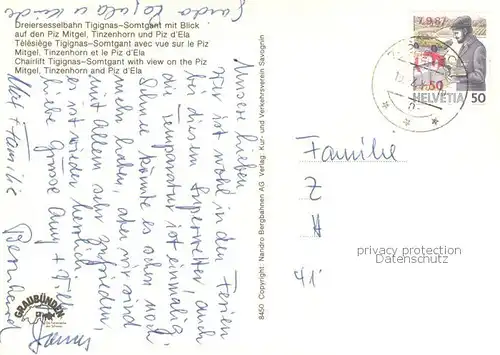 Dreiersesselbahn Tigignas–Somtgant mit Blick
auf den Piz Mitgel, Tinzenhorn und Piz d'Ela
Télésiège Tigignas-Somtgant avec vue sur le Piz
Mitgel, Tinzenhorn et le Piz d'Ela
Chairlift Tigignas-Somtgant with view on the Piz
Mitgel, Tinzenhorn and Piz d'Ela
Unsere lieben
Wir ist wohl in den Ferien
bei diesem Superwetter, auch
die Temperatur ist einmalig,
Schnee könnte es schon noch
mehr haben, aber wir sind
mit allem sehr zufrieden,
es ist wieder herrlich.
Liebe Grüsse
+ Familie
GRAUBÜNDEN
8450 Copyright: Nandro Bergbahnen AG Verlag: Kur- und Verkehrsverein Savognin
7.9.87
HELVETIA 50
Familie
Z
H
41'
privacy protection
Datenschutz